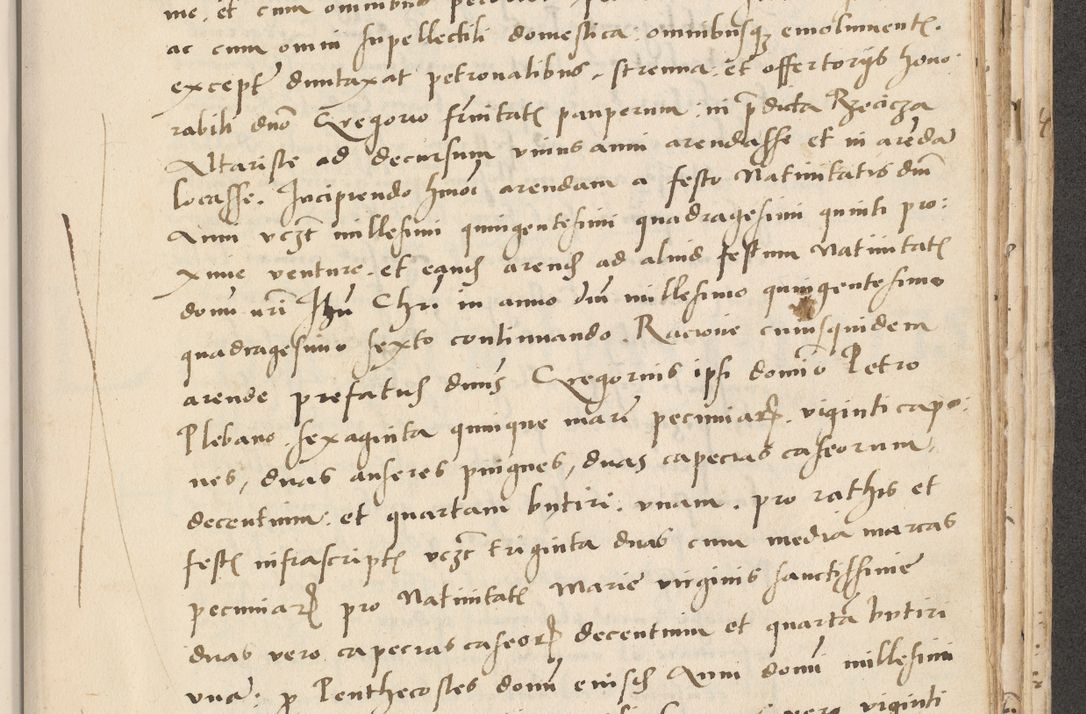 me. et cum omnibus
ac cum omni supellectili domestica. omnibusq; emolument.
except duntaxat petronalibus. strenna. et offertorijs hono
rabili dno Gregorio frnitatis pauperum. in pdicta Rzecicza
Altariste ad decursum vnius anni arendasse et in arēda
locasse. Incipiendo hmoi arendam a festo Natiuitatis dni
Anni vczt millesimi quingentesimi quadragesimi quinti pro:
xime venture. et eand arend ad aliud festum Natiuitatis
domi nri Jhu Chri in anno dni millesimo quingentesimo
quadragesimo sexto continuando. Racione cuiusquidem
arende prefatus dnus Gregorius ipsi domino Petro
Plebano. sexaginta quinque marc pecuniar. viginti capo:
nes, duas anseres pingues, duas capecias caseorum.
decentium. et quartam butiri. vnam. pro rathis et
fest infrascript vczt triginta duas cum media marcas
pecuniar pro Natiuitat Marie virginis sanctissime
duas vero capecias caseor decentium et quartā butiri
vnā. p Penthecostes domi eiusd Anni domi millesimi
viginti